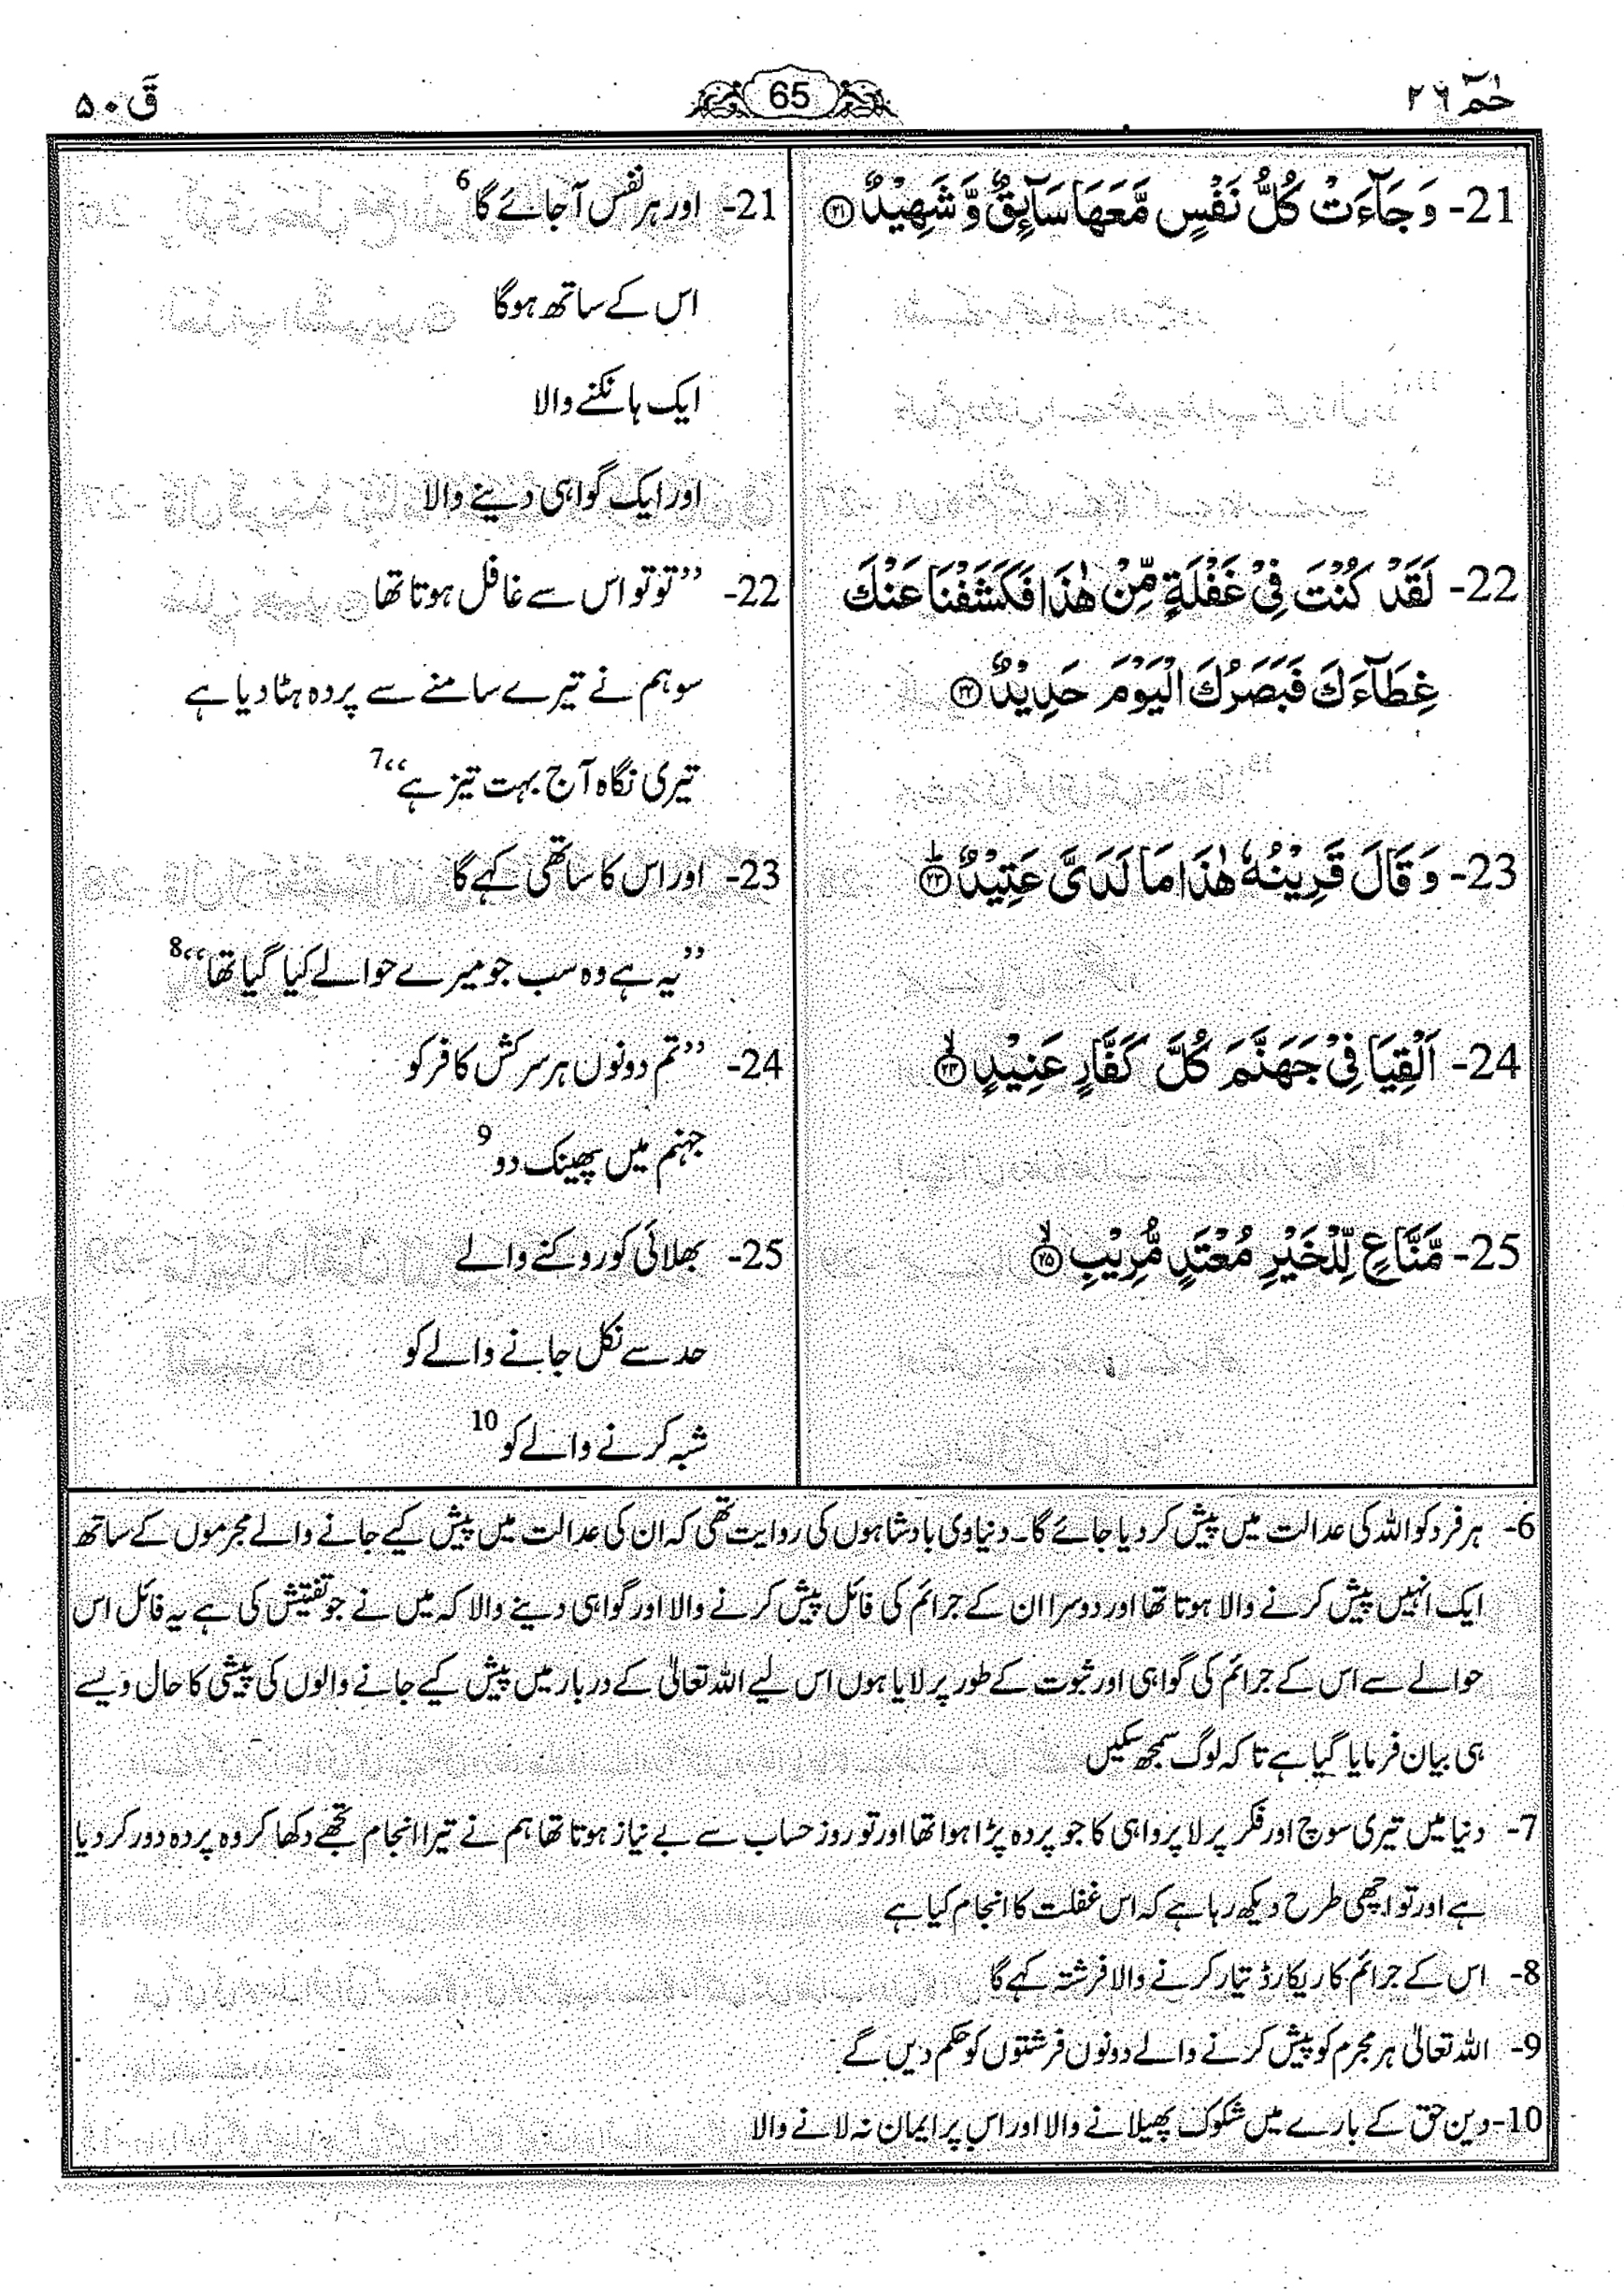 حٰمٓ ۲۶
65
قٓ ۵۰
21- وَ جَآءَتْ كُلُّ نَفْسٍ مَّعَهَا سَآئِقٌ وَّ شَهِيْدٌ ﴿۲۱﴾
22- لَقَدْ كُنْتَ فِيْ غَفْلَةٍ مِّنْ هٰذَا فَكَشَفْنَا عَنْكَ
غِطَآءَكَ فَبَصَرُكَ الْيَوْمَ حَدِيْدٌ ﴿۲۲﴾
23- وَ قَالَ قَرِيْنُهٗ هٰذَا مَا لَدَيَّ عَتِيْدٌ ﴿۲۳﴾ؕ
24- اَلْقِيَا فِيْ جَهَنَّمَ كُلَّ كَفَّارٍ عَنِيْدٍ ﴿۲۴﴾ۙ
25- مَّنَّاعٍ لِّلْخَيْرِ مُعْتَدٍ مُّرِيْبِ ﴿۲۵﴾ۙ
21- اور ہر نفس آ جائے گا 6
اس کے ساتھ ہوگا
ایک ہانکنے والا
اور ایک گواہی دینے والا
22- ’’تو تو اس سے غافل ہوتا تھا
سو ہم نے تیرے سامنے سے پردہ ہٹا دیا ہے
تیری نگاہ آج بہت تیز ہے‘‘ 7
23- اور اس کا ساتھی کہے گا
’’یہ ہے وہ سب جو میرے حوالے کیا گیا تھا‘‘ 8
24- ’’تم دونوں ہر سرکش کافر کو
جہنم میں پھینک دو 9
25- بھلائی کو روکنے والے
حد سے نکل جانے والے کو
شبہ کرنے والے کو 10
6- ہر فرد کو اللہ کی عدالت میں پیش کر دیا جائے گا۔ دنیاوی بادشاہوں کی روایت تھی کہ ان کی عدالت میں پیش کیے جانے والے مجرموں کے ساتھ
ایک انہیں پیش کرنے والا ہوتا تھا اور دوسرا ان کے جرائم کی فائل پیش کرنے والا اور گواہی دینے والا کہ میں نے جو تفتیش کی ہے یہ فائل اس
حوالے سے اس کے جرائم کی گواہی اور ثبوت کے طور پر لایا ہوں اس لیے اللہ تعالیٰ کے دربار میں پیش کیے جانے والوں کی پیشی کا حال ویسے
ہی بیان فرمایا گیا ہے تا کہ لوگ سمجھ سکیں
7- دنیا میں تیری سوچ اور فکر پر لا پرواہی کا جو پردہ پڑا ہوا تھا اور تو روز حساب سے بے نیاز ہوتا تھا ہم نے تیرا انجام تجھے دکھا کر وہ پردہ دور کر دیا
ہے اور تو اچھی طرح دیکھ رہا ہے کہ اس غفلت کا انجام کیا ہے
8- اس کے جرائم کا ریکارڈ تیار کرنے والا فرشتہ کہے گا
9- اللہ تعالیٰ ہر مجرم کو پیش کرنے والے دونوں فرشتوں کو حکم دیں گے
10- دین حق کے بارے میں شکوک پھیلانے والا اور اس پر ایمان نہ لانے والا